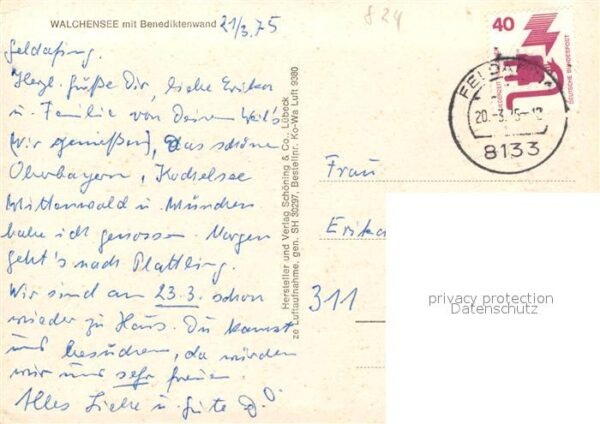 WALCHENSEE mit Benediktenwand 21/3.75
Feldafing.
Herzl. Grüße Dir, liebe Erika
u. Familie von Deinem
Wir genießen, das schöne
Oberbayern, Kochelsee
Mittenwald u. München
habe ich genossen. Morgen
geht's nach Plattling.
Wir sind am 23.3. schon
wieder zu Haus. Du kannst
uns besuchen, da würden
wir uns sehr freuen
Alles Liebe u. Gute
Hersteller und Verlag Schöning & Co., Lübeck
ze Luftaufnahme, gen. SH 30297, Bestellnr. Ko-Wa Luft 9380
824
40
DEUTSCHE BUNDESPOST
20.-3.
8133
Frau
Erika
311
privacy protection
Datenschutz